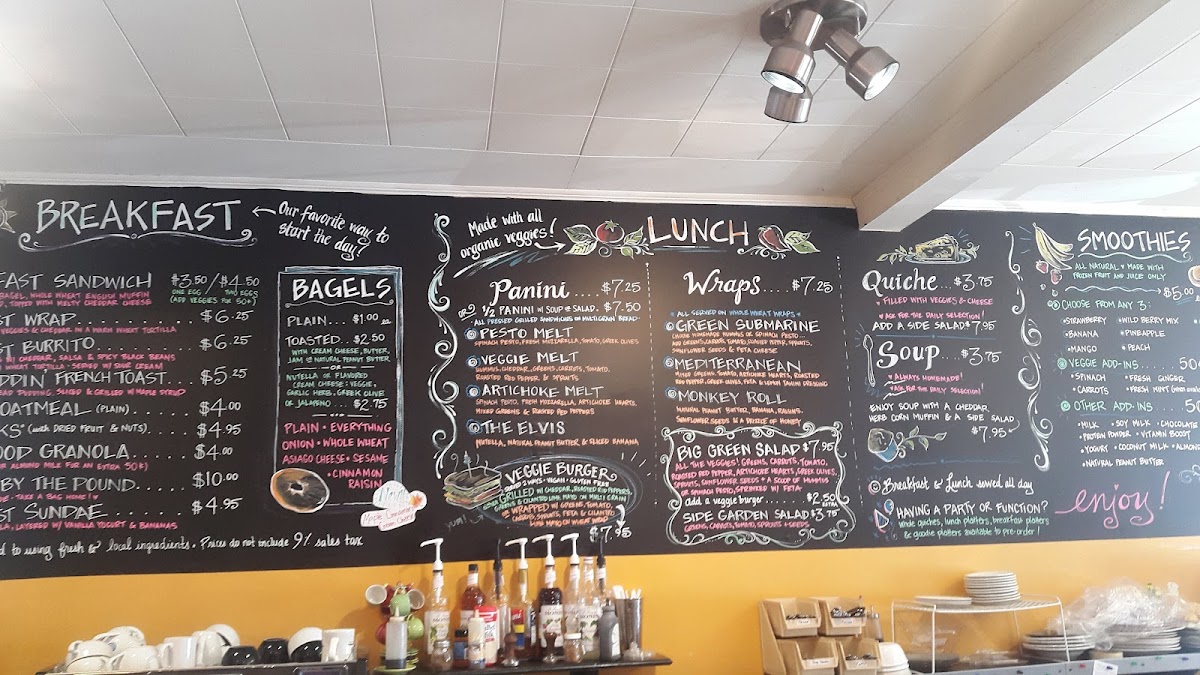 BREAKFAST
Our favorite way to
start the day!
FAST SANDWICH $3.50/$4.50
BAGEL, WHOLE WHEAT ENGLISH MUFFIN ONE EGG TWO EGGS
TOPPED WITH MELTY CHEDDAR CHEESE (ADD VEGGIES FOR 50¢)
ST WRAP $6.25
VEGGIES & CHEDDAR IN A WARM WHEAT TORTILLA
ST BURRITO $6.25
W/ CHEDDAR, SALSA & SPICY BLACK BEANS
WHEAT TORTILLA - SERVED W/ SOUR CREAM
DDIN' FRENCH TOAST $5.25
PUDDING, SLICED & GRILLED W/ MAPLE SYRUP
OATMEAL (PLAIN) $4.00
KS" (with DRIED FRUIT & NUTS) $4.95
OOD GRANOLA $4.00
ALMOND MILK FOR AN EXTRA 50¢)
BY THE POUND $10.00
TAKE A BAG HOME!
ST SUNDAE $4.95
LAYERED W/ VANILLA YOGURT & BANANAS
d to using fresh & local ingredients. Prices do not include 9% sales tax
BAGELS
PLAIN... $1.00
TOASTED.. $2.50
WITH CREAM CHEESE, BUTTER,
JAM or NATURAL PEANUT BUTTER
OR
NUTELLA or FLAVORED
CREAM CHEESE: VEGGIE,
GARLIC HERB, GREEK OLIVE
or JALAPEÑO ... $2.75
PLAIN • EVERYTHING
ONION • WHOLE WHEAT
ASIAGO CHEESE • SESAME
• CINNAMON
RAISIN
Made with all
organic veggies!
LUNCH
Panini ... $7.25
OR ½ PANINI W/ SOUP or SALAD. $7.50
ALL PRESSED GRILLED SANDWICHES ON MULTIGRAIN BREAD
PESTO MELT
SPINACH PESTO, FRESH MOZZARELLA, TOMATO, GREEK OLIVES
VEGGIE MELT
HUMMUS, CHEDDAR, GREENS, CARROTS, TOMATO,
ROASTED RED PEPPER, & SPROUTS
ARTICHOKE MELT
SPINACH PESTO, FRESH MOZZARELLA, ARTICHOKE HEARTS,
MIXED GREENS & ROASTED RED PEPPERS
THE ELVIS
NUTELLA, NATURAL PEANUT BUTTER, & SLICED BANANA
VEGGIE BURGER
SERVED 2 WAYS • VEGAN • GLUTEN FREE
GRILLED W/ CHEDDAR, ROASTED RED PEPPERS,
GREENS & CILANTRO LIME MAYO ON MULTI GRAIN
or WRAPPED W/ GREENS, TOMATO,
CARROTS, SPROUTS, FETA & CILANTRO
LIME MAYO ON WHEAT WRAP
$7.95
yum!
Wraps ... $7.25
ALL SERVED ON WHOLE WHEAT WRAPS
GREEN SUBMARINE
CHOOSE HOMEMADE HUMMUS OR SPINACH PESTO
ADD GREENS, CARROTS, TOMATO, RED PEPPER, SPROUTS,
SUNFLOWER SEEDS & FETA CHEESE
MEDITERRANEAN
MIXED GREENS, TOMATO, ARTICHOKE HEARTS, ROASTED
RED PEPPER, GREEK OLIVES, FETA & LEMON TAHINI DRESSING
MONKEY ROLL
NATURAL PEANUT BUTTER, BANANA, RAISINS,
SUNFLOWER SEEDS & A DRIZZLE OF HONEY
BIG GREEN SALAD $7.95
ALL THE VEGGIES! GREENS, CARROTS, TOMATO,
ROASTED RED PEPPER, ARTICHOKE HEARTS, GREEK OLIVES,
SPROUTS, SUNFLOWER SEEDS + A SCOOP OF HUMMUS
OR SPINACH PESTO, SPRINKLED W/ FETA
add a veggie burger $2.50
EXTRA
SIDE GARDEN SALAD $3.75
GREENS, CARROTS, TOMATO, SPROUTS & SEEDS
Quiche .. $3.75
FILLED WITH VEGGIES & CHEESE
ASK FOR THE DAILY SELECTION!
ADD A SIDE SALAD $7.95
Soup ... $3.75
ALWAYS HOMEMADE!
ASK FOR THE DAILY SELECTION!
ENJOY SOUP WITH A CHEDDAR
HERB CORN MUFFIN & A SIDE SALAD
$7.95
Breakfast & Lunch served all day
HAVING A PARTY OR FUNCTION?
Whole quiches, lunch platters, breakfast platters
& goodie platters available to pre-order!
SMOOTHIES
ALL NATURAL • MADE WITH
FROZEN FRUIT AND JUICE ONLY
$5.00
CHOOSE FROM ANY 3:
• STRAWBERRY • WILD BERRY MIX
• BANANA • PINEAPPLE
• MANGO • PEACH
VEGGIE ADD-INS 50¢
• SPINACH • FRESH GINGER
• CARROTS • FRESH MINT
OTHER ADD-INS 50
• MILK • SOY MILK • CHOCOLATE
PROTEIN POWDER • VITAMIN BOOST
• YOGURT • COCONUT MILK • ALMOND
• NATURAL PEANUT BUTTER
enjoy!